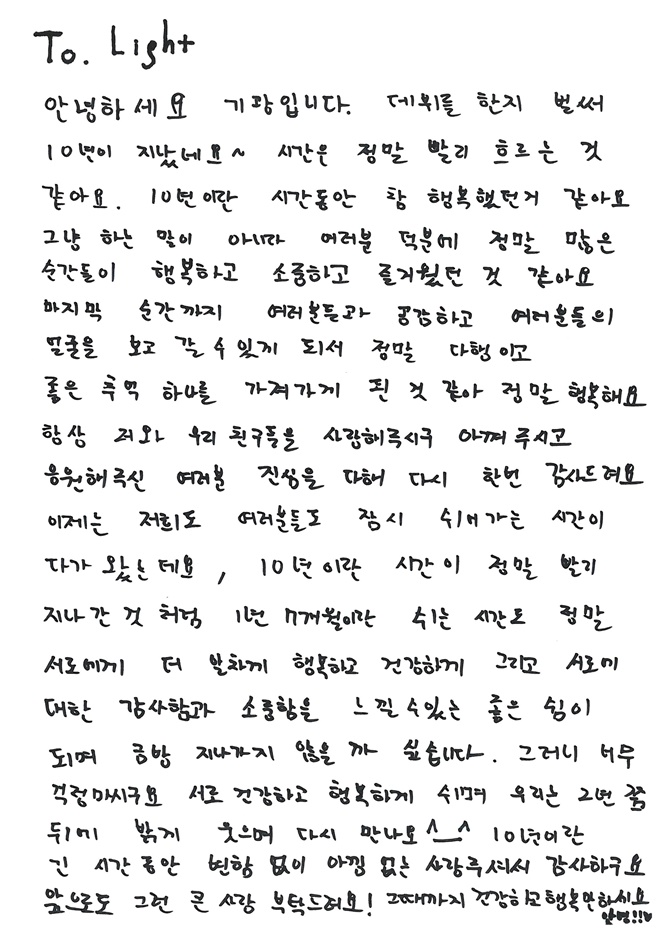 To. Light
안녕하세요 기광입니다. 데뷔를 한지 벌써
10년이 지났네요~ 시간은 정말 빨리 흐르는 것
같아요. 10년이란 시간동안 참 행복했던거 같아요
그냥 하는 말이 아니라 여러분 덕분에 정말 많은
순간들이 행복하고 소중하고 즐거웠던 것 같아요
마지막 순간까지 여러분들과 공감하고 여러분들의
얼굴을 보고 갈 수 있게 되서 정말 다행이고
좋은 추억 하나를 가져가게 된 것 같아 정말 행복해요
항상 저와 우리 친구들을 사랑해주시구 아껴주시고
응원해주신 여러분 진심을 다해 다시 한번 감사드려요
이제는 저희도 여러분들도 잠시 쉬어가는 시간이
다가 왔는데요, 10년이란 시간이 정말 빨리
지나간 것 처럼 1년 7개월이란 쉬는 시간도 정말
서로에게 더 알차게 행복하고 건강하게 그리고 서로에
대한 감사함과 소중함을 느낄 수 있는 좋은 쉼이
되며 금방 지나가지 않을 까 싶습니다. 그러니 너무
걱정마시구요 서로 건강하고 행복하게 쉬며 우리는 2년 쯤
뒤에 밝게 웃으며 다시 만나요^__^ 10년이란
긴 시간 동안 변함 없이 아낌 없는 사랑주셔서 감사하구요
앞으로도 그런 큰 사랑 부탁드려요! 그때까지 건강하고 행복만하세요
안녕!!♡